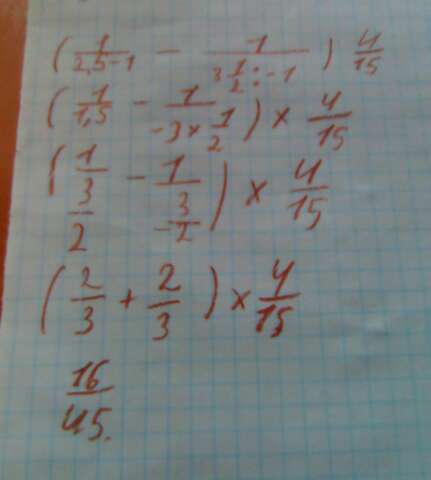 (1/2,5-1 - 1/3 1/2 : -1) 4/15
(1/1,5 - 1/-3×1/2) × 4/15
(1/3/2 - 1/-3/2) × 4/15
(2/3 + 2/3) × 4/15
16/45.